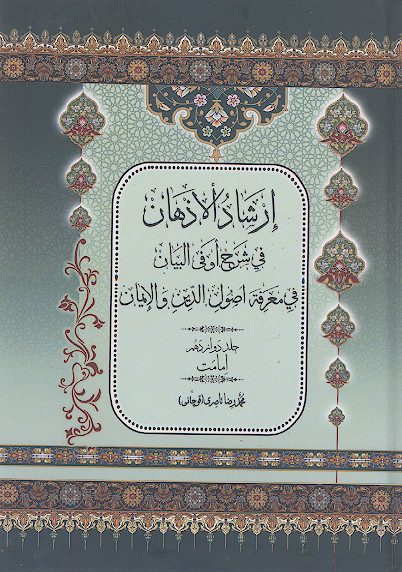 إرشاد الأذهان
في شرح أوفى البيان
في معرفة اصول الدين والإيمان
جلد دوازدهم
امامت
محمدرضا ناصری (قوچانی)